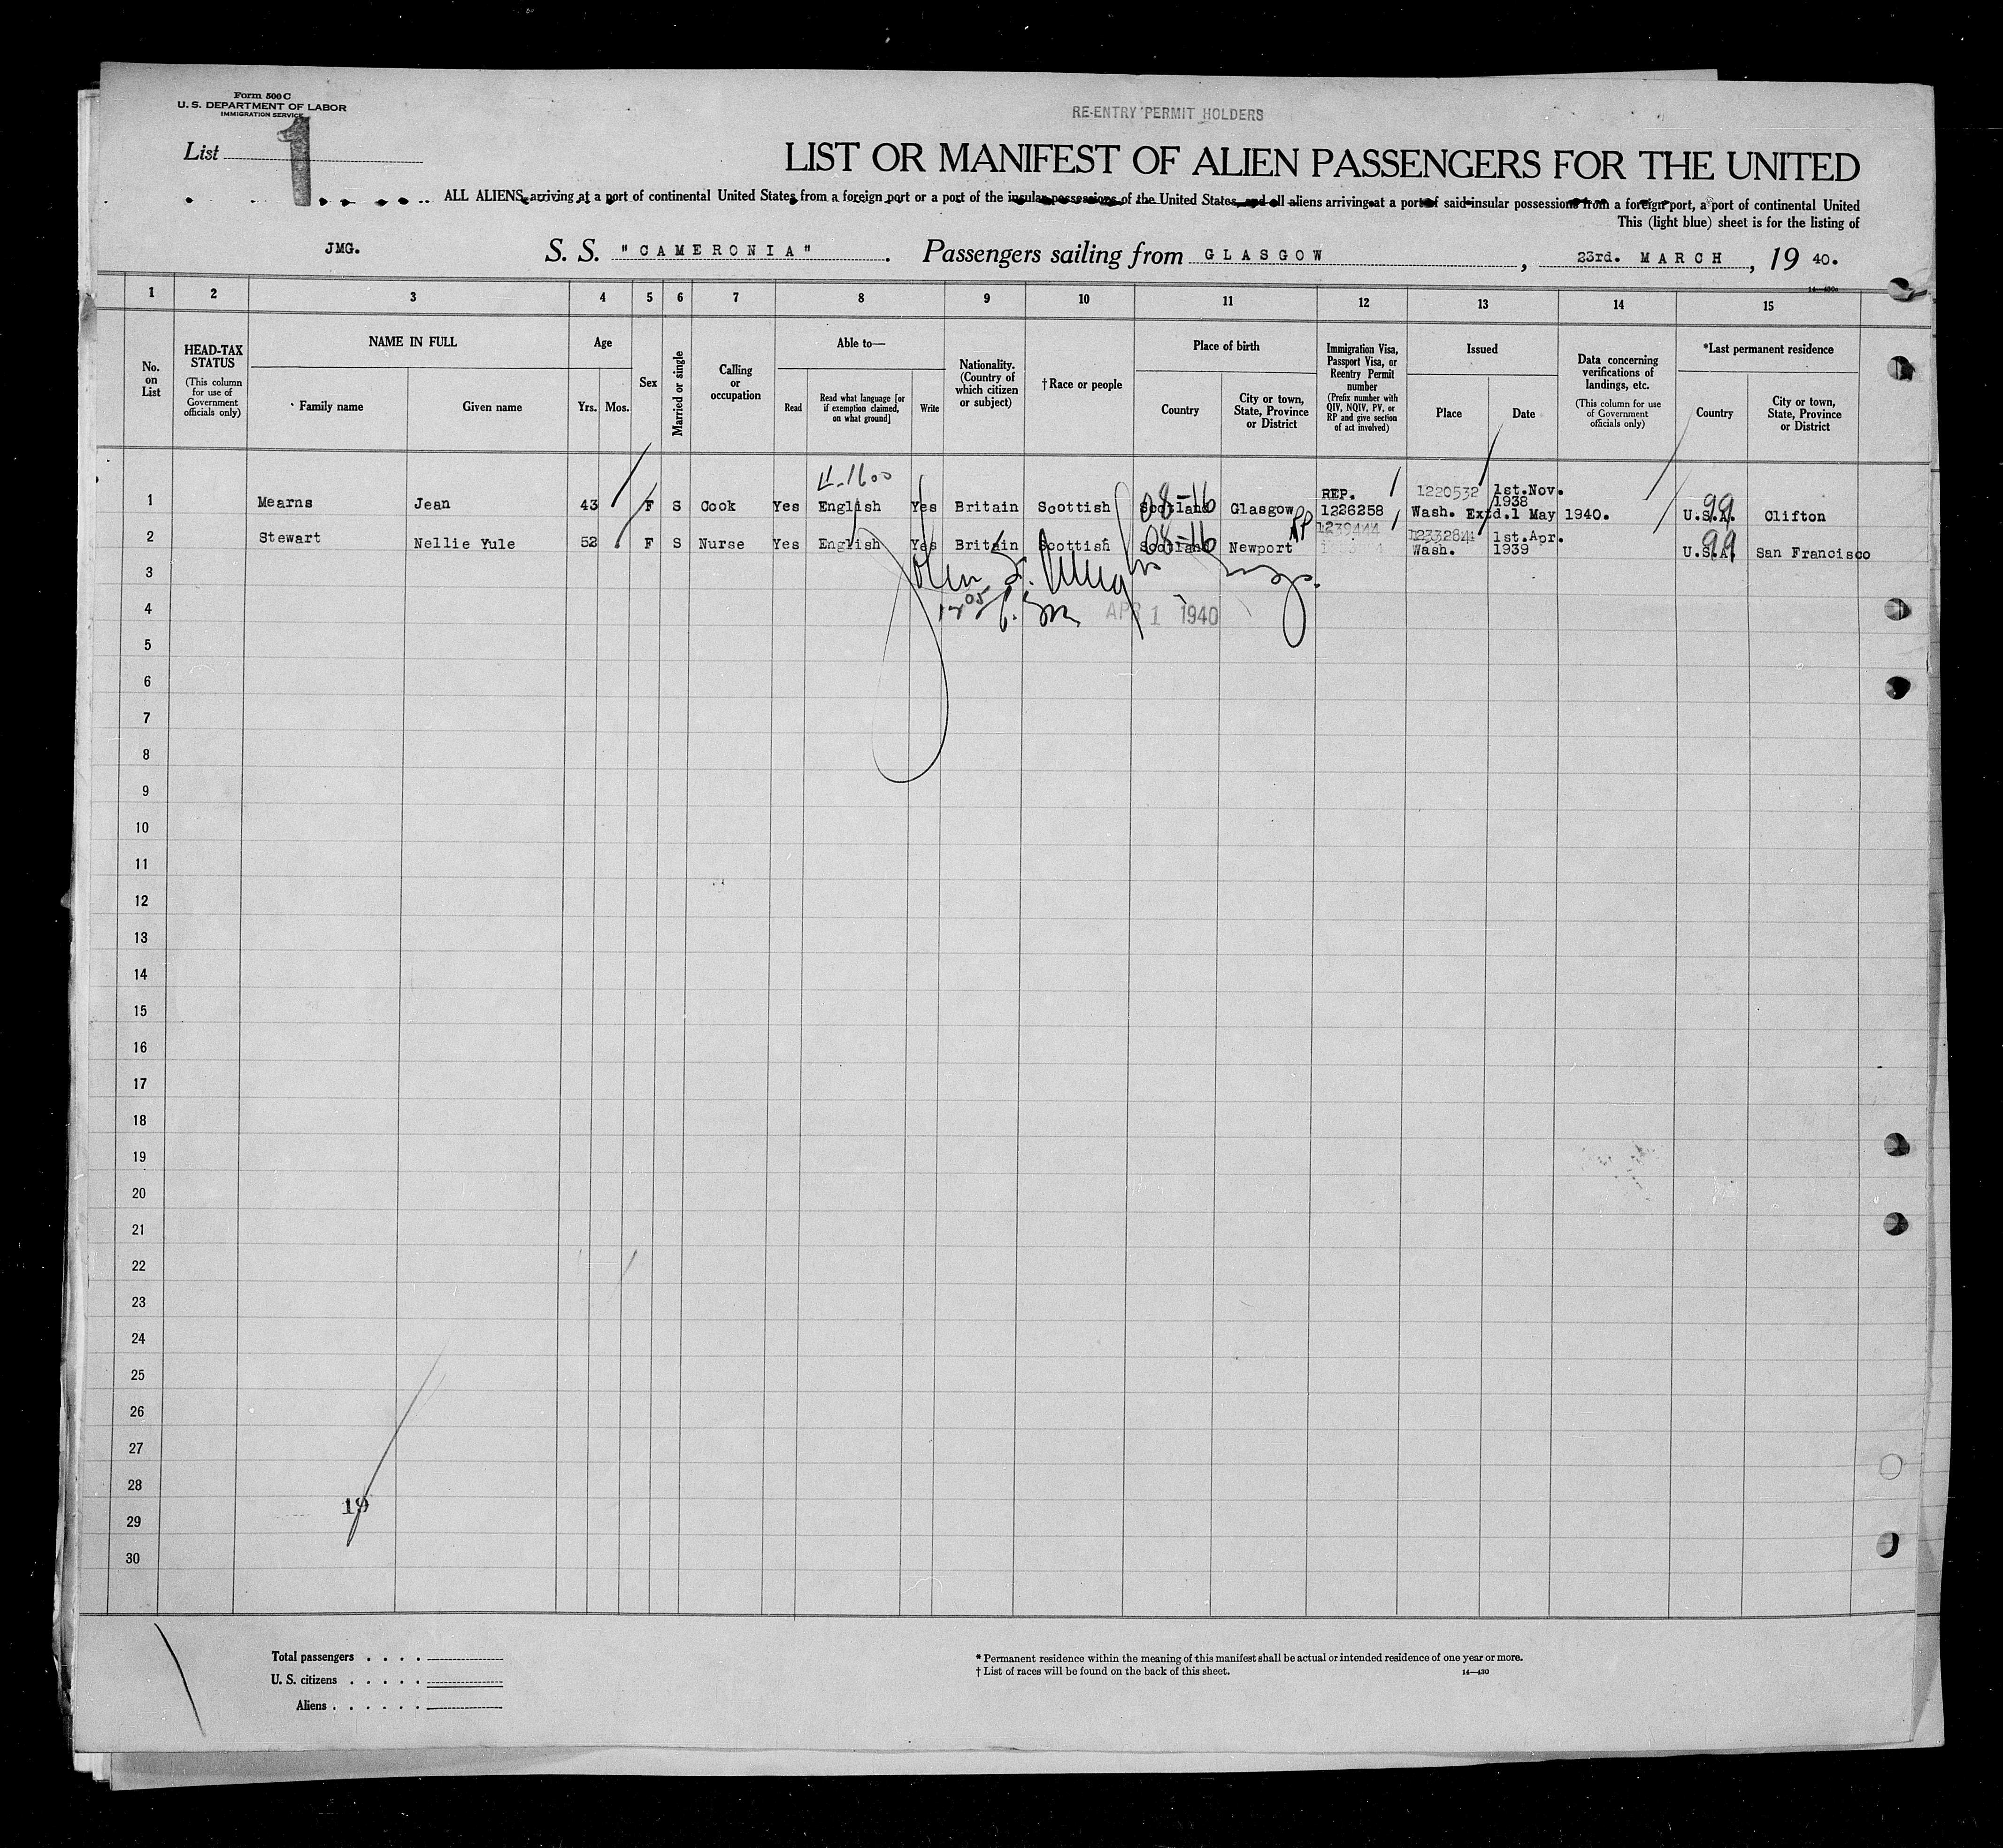 Form 500 C
U. S. DEPARTMENT OF LABOR
IMMIGRATION SERVICE
RE-ENTRY PERMIT HOLDERS
List 1
LIST OR MANIFEST OF ALIEN PASSENGERS FOR THE UNITED
ALL ALIENS arriving at a port of continental United States from a foreign port or a port of the insular possessions of the United States, and all aliens arriving at a port of said insular possessions from a foreign port, a port of continental United
This (light blue) sheet is for the listing of
JMG. S. S. "CAMERONIA". Passengers sailing from GLASGOW, 23rd. MARCH, 19 40.
14—430a
1 2 3 4 5 6 7 8 9 10 11 12 13 14 15
No. on List
HEAD-TAX STATUS
(This column for use of Government officials only)
NAME IN FULL
Family name Given name
Age
Yrs. Mos.
Sex
Married or single
Calling or occupation
Able to—
Read
Read what language [or if exemption claimed, on what ground]
Write
Nationality. (Country of which citizen or subject)
†Race or people
Place of birth
Country
City or town, State, Province or District
Immigration Visa, Passport Visa, or Reentry Permit number
(Prefix number with QIV, NQIV, PV, or RP and give section of act involved)
Issued
Place Date
Data concerning verifications of landings, etc.
(This column for use of Government officials only)
*Last permanent residence
Country
City or town, State, Province or District
1 Mearns Jean 43 F S Cook Yes English Yes Britain Scottish Scotland 08-16 Glasgow REP. 1226258 1220532 Wash. 1st.Nov. 1938 Extd.1 May 1940. U.S.A. 99 Clifton
2 Stewart Nellie Yule 52 F S Nurse Yes English Yes Britain Scottish Scotland 08-16 Newport RP 1239444 Wash. 1st.Apr. 1939 U.S.A. 99 San Francisco
3
4 APR 1 1940
5
6
7
8
9
10
11
12
13
14
15
16
17
18
19
20
21
22
23
24
25
26
27
28
19
29
30
Total passengers . . . .
U. S. citizens . . . . .
Aliens . . . . . .
* Permanent residence within the meaning of this manifest shall be actual or intended residence of one year or more.
† List of races will be found on the back of this sheet.
14—430